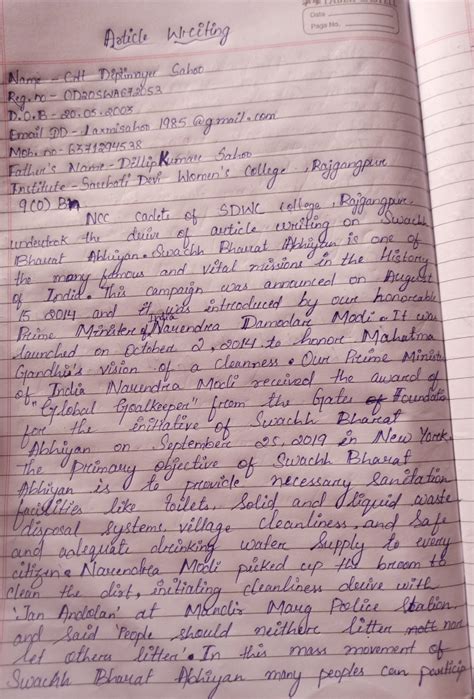 Date
Page No.
Article Writing
Name - Cdt Diptimayee Sahoo
Reg. no - OD20SWA672053
D.O.B - 20.05.2003
Email ID - Laxmisahoo1985@gmail.com
Mob. no - 6371294538
Father's Name - Dillip Kumar Sahoo
Institute - Sarbati Devi Women's College, Rajgangpur
9(O) Bn
NCC cadets of SDWC College, Rajgangpur
undertook the drive of article writing on Swachh
Bharat Abhiyan. Swachh Bharat Abhiyan is one of
the many famous and vital missions in the History
of India. This campaign was announced on August
15 2014 and it was introduced by our honorable
Prime Minister of India Narendra Damodar Modi. It was
launched on October 2, 2014 to honor Mahatma
Gandhi's vision of a cleanness. Our Prime Minister
of India Narendra Modi received the award of
"Global Goalkeeper" from the Gates of Foundation
for the initiative of Swachh Bharat
Abhiyan on September 25, 2019 in New York.
the primary objective of Swachh Bharat
Abhiyan is to provide necessary sanitation
facilities like toilets, solid and liquid waste
disposal systems, village cleanliness, and safe
and adequate drinking water supply to every
citizen. Narendra Modi picked up the broom to
clean the dirt, initiating cleanliness derive with
'Jan Andolan' at Mandir Marg Police Station
and said 'People should neithere litter nor
let others litter'. In this mass movement of
Swachh Bharat Abhiyan many peoples can particip